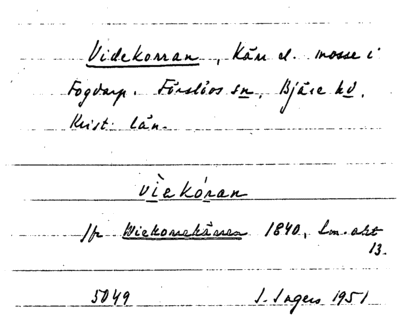 Videkorran, Kärr el. mosse i
Fogdarp. Förslövs sn, Bjäre hd,
Krist. län.
vìekóran
Jfr Wiekorrekären 1840, Lm. akt
13.
5049 I. Ingers 1951